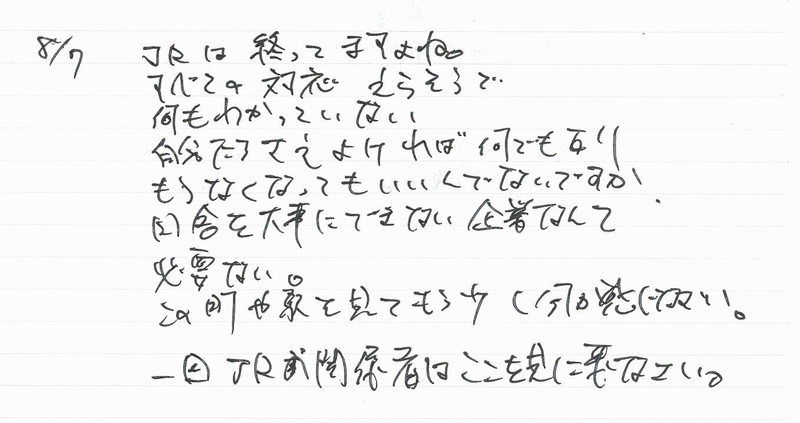 8/7 JRは終ってますよね。
すべての対応えらそうで
何もわかっていない
自分たちさえよければ何でも有り
もうなくなってもいいんでないですか!
田舎を大事にできない企業なんて
必要ない。
この町や駅を見てもう少し何か感じなさい。
一回JR武関係者はここを見に来なさい。